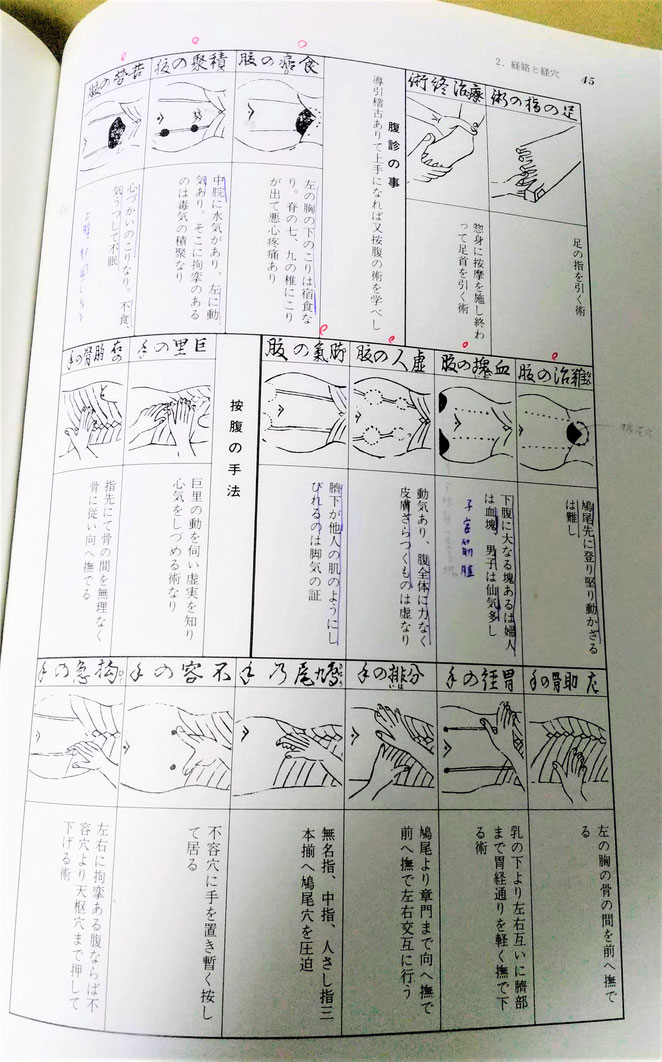 2．経絡と経穴
45
足の指の術
足の指を引く術
療治終術
惣身に按摩を施し終わ
って足首を引く術
腹診の事
導引稽古ありて上手になれば又按腹の術を学べし
の腹
左の胸の下のこりは宿食な
り。脊の七、九の椎にこり
が出て悪心疼痛あり
積聚の腹
中脘に水気があり、左に動
気あり。そこに拘攣のある
のは毒気の積聚なり
苦労の腹
心づかいのこりなり。不食、
気うつして不眠
難治の腹
鳩尾先に登り堅り動かざる
は難し
血塊の腹
下腹に大なる塊あるは婦人
は血塊、男子は仙気多し
子宮筋腫
虚人の腹
動気あり、腹全体に力なく
皮膚ざらつくものは虚なり
脚氣の腹
臍下が他人の肌のようにし
びれるのは脚気の証
按腹の手法
巨里の手
巨里の動を伺い虚実を知り
心気をしづめる術なり
右の肋骨の手
指先にて骨の間を無理なく
骨に従い向へ撫でる
左肋骨の手
左の胸の骨の間を前へ撫で
る
胃経の手
乳の下より左右互いに臍部
まで胃経通りを軽く撫で下
る術
分排の手
鳩尾より章門まで向へ撫で
前へ撫で左右交互に行う
鳩尾乃手
無名指、中指、人さし指三
本揃へ鳩尾穴を圧迫
不容の手
不容穴に手を置き暫く按し
て居る
拘急の手
左右に拘攣ある腹ならば不
容穴より天枢穴まで押して
下げる術